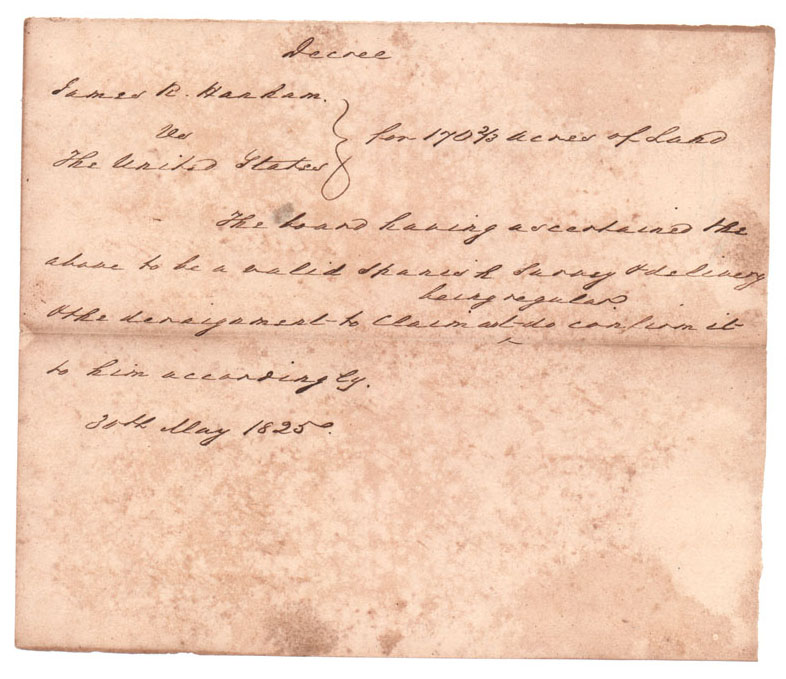 Decree
James R. Hanham.
Vs
The United States
for 170 2/3 acres of Land
The board having ascertained the
above to be a valid Spanish Survey & delivery
being regular
& the deraignment to Claimant do confirm it
to him accordingly.
30th May 1825.